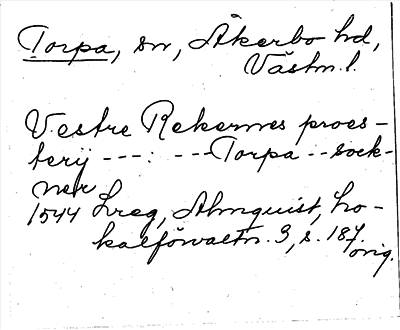 Torpa, sn, Åkerbo hd,
Västm. l.
Vestre Rekernes proes-
terij ---: ---Torpa --sock-
ner
1544 Lreg, Almquist, Lo-
kalförvaltn. 3, s. 187.
orig.